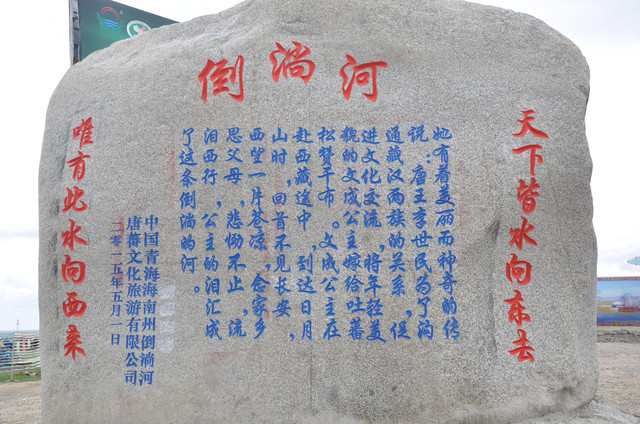 倒淌河
天下皆水向东去
她有着美丽而神奇的传
说：唐王李世民为了沟
通藏汉两族的关系，促
进文化交流，将年轻美
貌的文成公主嫁给吐蕃
松赞干布。文成公主在
赴西藏途中，到达日月
山时，回首不见长安，
西望一片苍凉，念家乡
思父母，悲恸不止，流
泪西行，公主的泪汇成
了这条倒淌的河。
中国青海海南州倒淌河
唐蕃文化旅游有限公司
二零一五年五月一日
唯有此水向西来